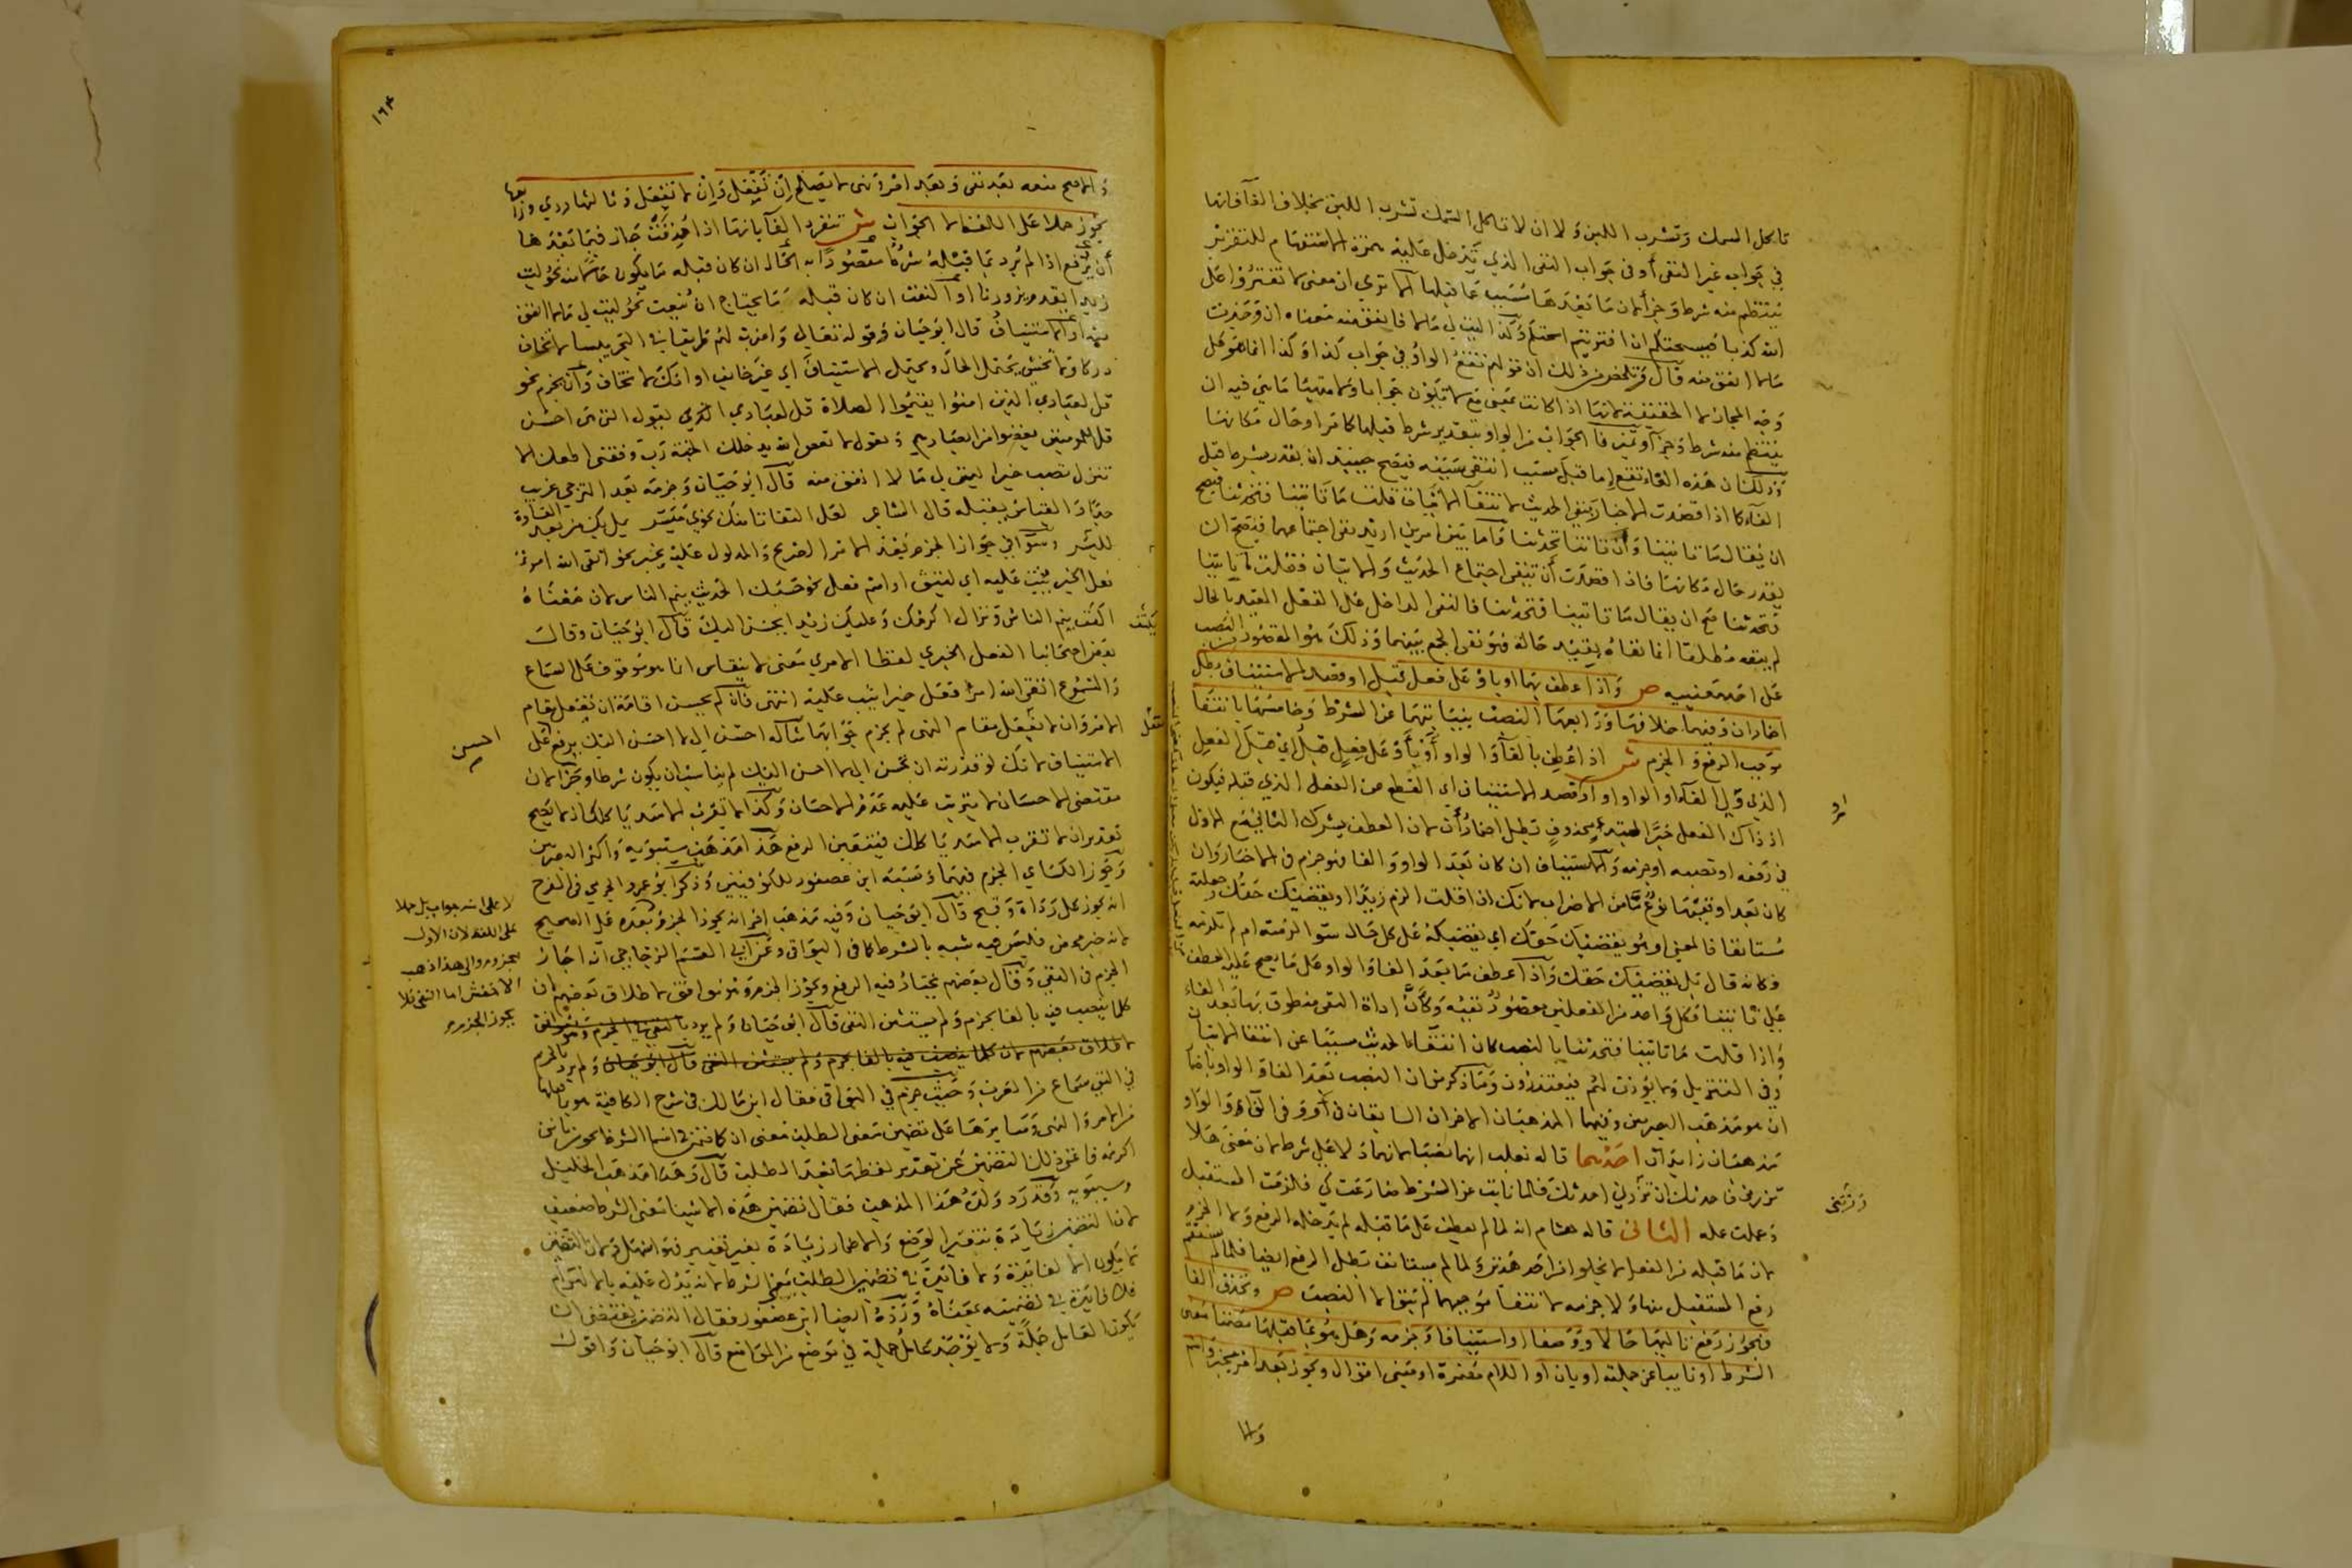 تاكل السمك وتشرب اللبن ولا ان لا تاكل السمك تشرب اللبن بخلاف الفا فانها
في جواب غير النفي او في جواب النفي الذي تدخل عليه همزة الاستفهام للتقرير
ينتظم منه شرط وجزا لان ما بعدها مسبب عما قبلها الا ترى ان معنى لا تفتروا على
الله كذبا فيسحتكم ان افتريتم اسحتكم وكذا ليت لي مالا فانفق منه معناه ان وجدت
مالا انفق منه قال وتلخص من ذلك ان قولهم تقع الواو في جواب كذا وكذا انما هو على
وجه المجاز لا الحقيقة
ينتظم منه شرط وجزا وتميز فا الجواب من الواو بتقدير شرط قبلها كما مر او حال مكانها
وذلك ان هذه الفاء تقع اما قبل مسبب انتفى سببه فيصح حينئذ ان يقدر بشرط قبل
الفاء كما اذا قصدت الاخبار بنفي الحديث لانتفاء الاتيان قلت ما تاتينا فتحدثنا فيصح
ان يقال ما تاتينا وان تاتنا تحدثنا واما بين امرين اريد نفي اجتماعهما فيصح ان
يقدر حال مكانها فاذا قصدت ان تنفي اجتماع الحديث والاتيان فقلت ما تاتينا
فتحدثنا صح ان يقال ما تاتينا فتحدثنا فالنفي الداخل على الفعل المقيد بالحال
لم ينفه مطلقا انما نفاه بقيد حاله فهو نفي الجمع بينهما وذلك هو المقصود بالنصب
على احد معنييه ص واذا عطف بهما او باو على فعل قبل او قصد الاستيناف بطل
اضمار ان وفيهما خلافها ورابعها النصب بنيابتهما عن الشرط وخامسها بانتفا
موجب الرفع والجزم ش اذا عطف بالفاء او الواو او باو على فعل قبل اي قبل الفعل
الذي ولي الفاء او الواو او او قصد الاستيناف اي القطع عن الفعل الذي قبله فيكون
اذ ذاك الفعل خبرا لمبتدا محذوف بطل اضمار ان لان العطف يشرك الثاني مع الاول
في رفعه او نصبه او جزمه والاستيناف ان كان بعد الواو والفا فهو جزم في الاخبار وان
كان بعد او ففيها نوع ما من الاضراب لانك اذا قلت الزم زيدا او يقضيك حقك وجعلته
مستانفا فالمعنى او هو يقضيك حقك اي يقضيكه على كل حال سوا لزمته ام لم تلزمه
وكانه قال بل يقضيك حقك واذا عطف ما بعد الفا والواو على ما يصح عليه العطف
قبل تاتينا فكل واحد من الفعلين مقصود نفيه وكأن اداة النفي منطوق بها بعد الفاء
واذا قلت ما تاتينا فتحدثنا بالنصب كان انتفاء الحديث مسببا عن انتفا الاتيان
وفي التنزيل ولا يوذن لهم فيعتذرون وما ذكر من ان النصب بعد الفا والواو باضمار
ان هو مذهب البصريين وفيهما المذهبان الاخران السابقان في او وفي الفاء والواو
مذهبان زايدان احدهما قاله ثعلب انهما نصبا لانهما دلا على شرط لان معنى هلا
تزورني فاحدثك ان تزرني احدثك فلما نابت عن الشرط ضارعت كي فلزمت المستقبل
وعملت عمله الثاني قاله هشام انه لما لم يعطف على ما قبله لم يدخله الرفع ولا الجزم
لان ما قبله من الفعل لا يخلو من احد هذين ولما لم يستانف بطل الرفع ايضا فلما لم يستقم
رفع المستقبل منها ولا جزمه لانتفا موجبهما لم يبق الا النصب ص وتحذف الفا
فيجوز رفع تاليها حالا او وصفا او استينافا وجزمه وهل هو بما قبلها مضمنا معنى
الشرط او نايبا عن جملته او بان او اللام مضمرة او مبني اقوال ويجوز بعد امر بخبر واسم
والا
او
تزرني
١٦٤
والاصح منعه بعد نفي وبعد امر ونهي لا يصلح ان تفعل وان لا تفعل
يجوز حملا على اللفظ لا الجواب ش تنفرد الفا بانها اذا حذفت جاز فيما بعدها
ان يرفع اذا لم ترد بما قبله شرطا مقصودا به الحال ان كان قبله ما يكون حالا منه نحو ليت
زيدا يقدم يزورنا او النعت ان كان قبله ما يحتاج ان ينعت نحو ليت لي مالا انفق
منه او الاستيناف قال ابو حيان وقوله تعالى واضرب لهم طريقا في البحر يبسا لا تخاف
دركا ولا تخشى يحتمل الحال ويحتمل الاستيناف اي غير خايف او انك لا تخاف وان يجزم نحو
قل لعبادي الذين امنوا يقيموا الصلاة قل لعبادي يقولوا التي هي احسن
قل للمومنين يغضوا من ابصارهم
تنزل نصب خيرا ليت لي مالا انفق منه قال ابو حيان وجزمه بعد الترجي غريب
جدا والقياس يقبله قال الشاعر لعل التفاتا منك نحوي ميسر يمل بك من بعد القساوة
لليسر وسوا في جواز الجزم بعد الامر الصريح والمدلول عليه بخبر نحو اتقى الله امرؤ
فعل خيرا يثب عليه اي ليتق او اسم فعل نحو حسبك الحديث ينم الناس لان معناه
اكفف ينم الناس ونزال اكرمك وعليك زيدا يحسن اليك قال ابو حيان وقال
بعض اصحابنا الفعل الخبري لفظا الامري معنى لا ينقاس انما هو موقوف على السماع
والمسموع اتقى الله امرؤ فعل خيرا يثب عليه انتهى فان لم يحسن اقامة ان تفعل مقام
الامر وان لا تفعل مقام النهي لم يجزم جوابهما مثاله احسن الي لا احسن اليك يرفع على
الاستيناف لانك لو قدرته ان تحسن الي لا احسن اليك لم يناسب ان يكون شرطا وجزا لان
مقتضى الاحسان لا يترتب عليه عدم الاحسان وكذا لا تقرب الاسد ياكلك اذ لا يصح
تقدير ان لا تقرب الاسد ياكلك فيتعين الرفع هذا مذهب سيبويه واكثر البصريين
وجوز الكساي الجزم فيهما ونسبه ابن عصفور للكوفيين وذكر ابو عمرو الجرمي في الفرخ
انه يجوز على رداة وقبح قال ابو حيان وفيه مذهب اخر انه يجوز الجزم بعده على الصحيح
لانه خبر محض فليس فيه شبه بالشرط كما في البواقي وعن ابي القسم الزجاجي انه اجاز
الجزم في النفي وقال بعضهم يختار فيه الرفع ويجوز الجزم وهو موافق لاطلاق بعضهم ان
كلما ينصب فيه بالفا يجزم ولم يستثن النفي قال ابو حيان ولم يرد بالنفي في الجزم وهو موافق
لاطلاق بعضهم لان كلما ينصب فيه بالفا يجزم ولم يستثن النفي قال ابو حيان ولم يرد بالجزم
في النفي سماع من العرب وحيث جزم في البواقي فقال ابن مالك في شرح الكافية هو بما قبلها
من الامر والنهي وسايرها على تضمين معنى الطلب معنى ان كما تضمن اسما الشرط نحو من ياتني
اكرمه فاغنى ذلك التضمين عن تقدير لفظها بعد الطلب قال وهذا مذهب الخليل
وسيبويه وقد رد ولده هذا المذهب فقال تضمين هذه الاشيا معنى الشرط ضعيف
لان التضمين زيادة بتغيير الوضع والاضمار زيادة بغير تغيير فهو اسهل ولان التضمين
لا يكون الا لفايدة ولا فايدة في تضمين الطلب معنى الشرط لانه يدل عليه بالالتزام
فلا فايدة في تضمينه معناه ورده ايضا ابن عصفور فقال التضمين يقتضي ان
يكون العامل جملة ولا يوجد عامل جملة في موضع من المواضع قال ابو حيان واقول
يكتف
تفعل
احسن
لا على انه جواب بل حملا
على اللفظ لان الاول
مجزوم والى هذا ذهب
الاخفش اما النفي فلا
يجوز الجزم